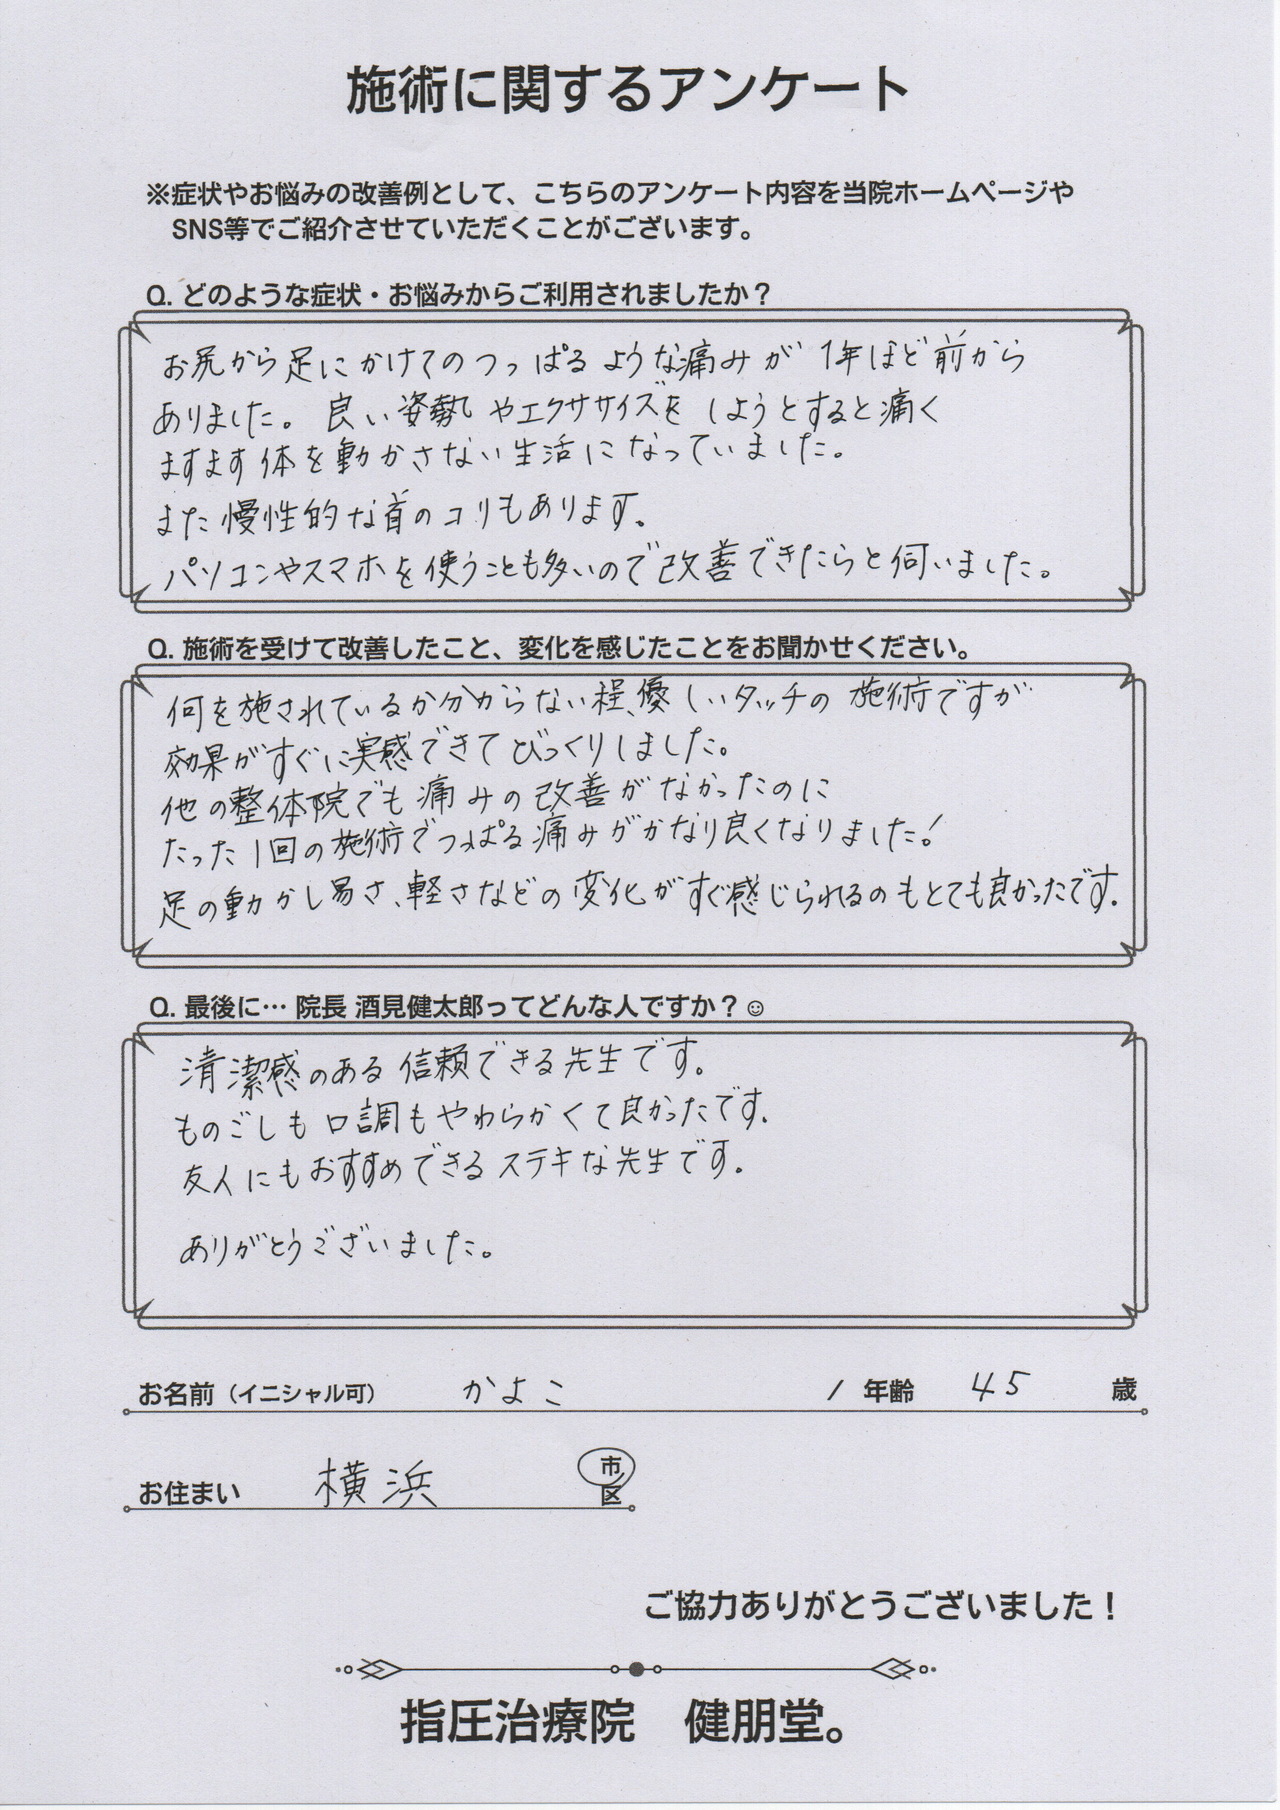 施術に関するアンケート
※症状やお悩みの改善例として、こちらのアンケート内容を当院ホームページや
SNS等でご紹介させていただくことがございます。
Q. どのような症状・お悩みからご利用されましたか？
お尻から足にかけてのつっぱるような痛みが 1年ほど前から
ありました。良い姿勢やエクササイズをしようとすると痛く
ますます体を動かさない生活になっていました。
また慢性的な首のコリもあります。
パソコンやスマホを使うことも多いので改善できたらと伺いました。
Q. 施術を受けて改善したこと、変化を感じたことをお聞かせください。
何を施されているか分からない程、優しいタッチの施術ですが
効果がすぐに実感できてびっくりしました。
他の整体院でも痛みの改善がなかったのに
たった1回の施術でつっぱる痛みがかなり良くなりました!
足の動かし易さ、軽さなどの変化がすぐ感じられるのもとても良かったです.
Q. 最後に… 院長 酒見健太郎ってどんな人ですか？☺
清潔感のある信頼できる先生です。
ものごしも口調もやわらかくて良かったです.
友人にもおすすめできるステキな先生です。
ありがとうございました。
お名前（イニシャル可） かよこ / 年齢 45 歳
お住まい 横浜 市
区
ご協力ありがとうございました！
指圧治療院 健朋堂。